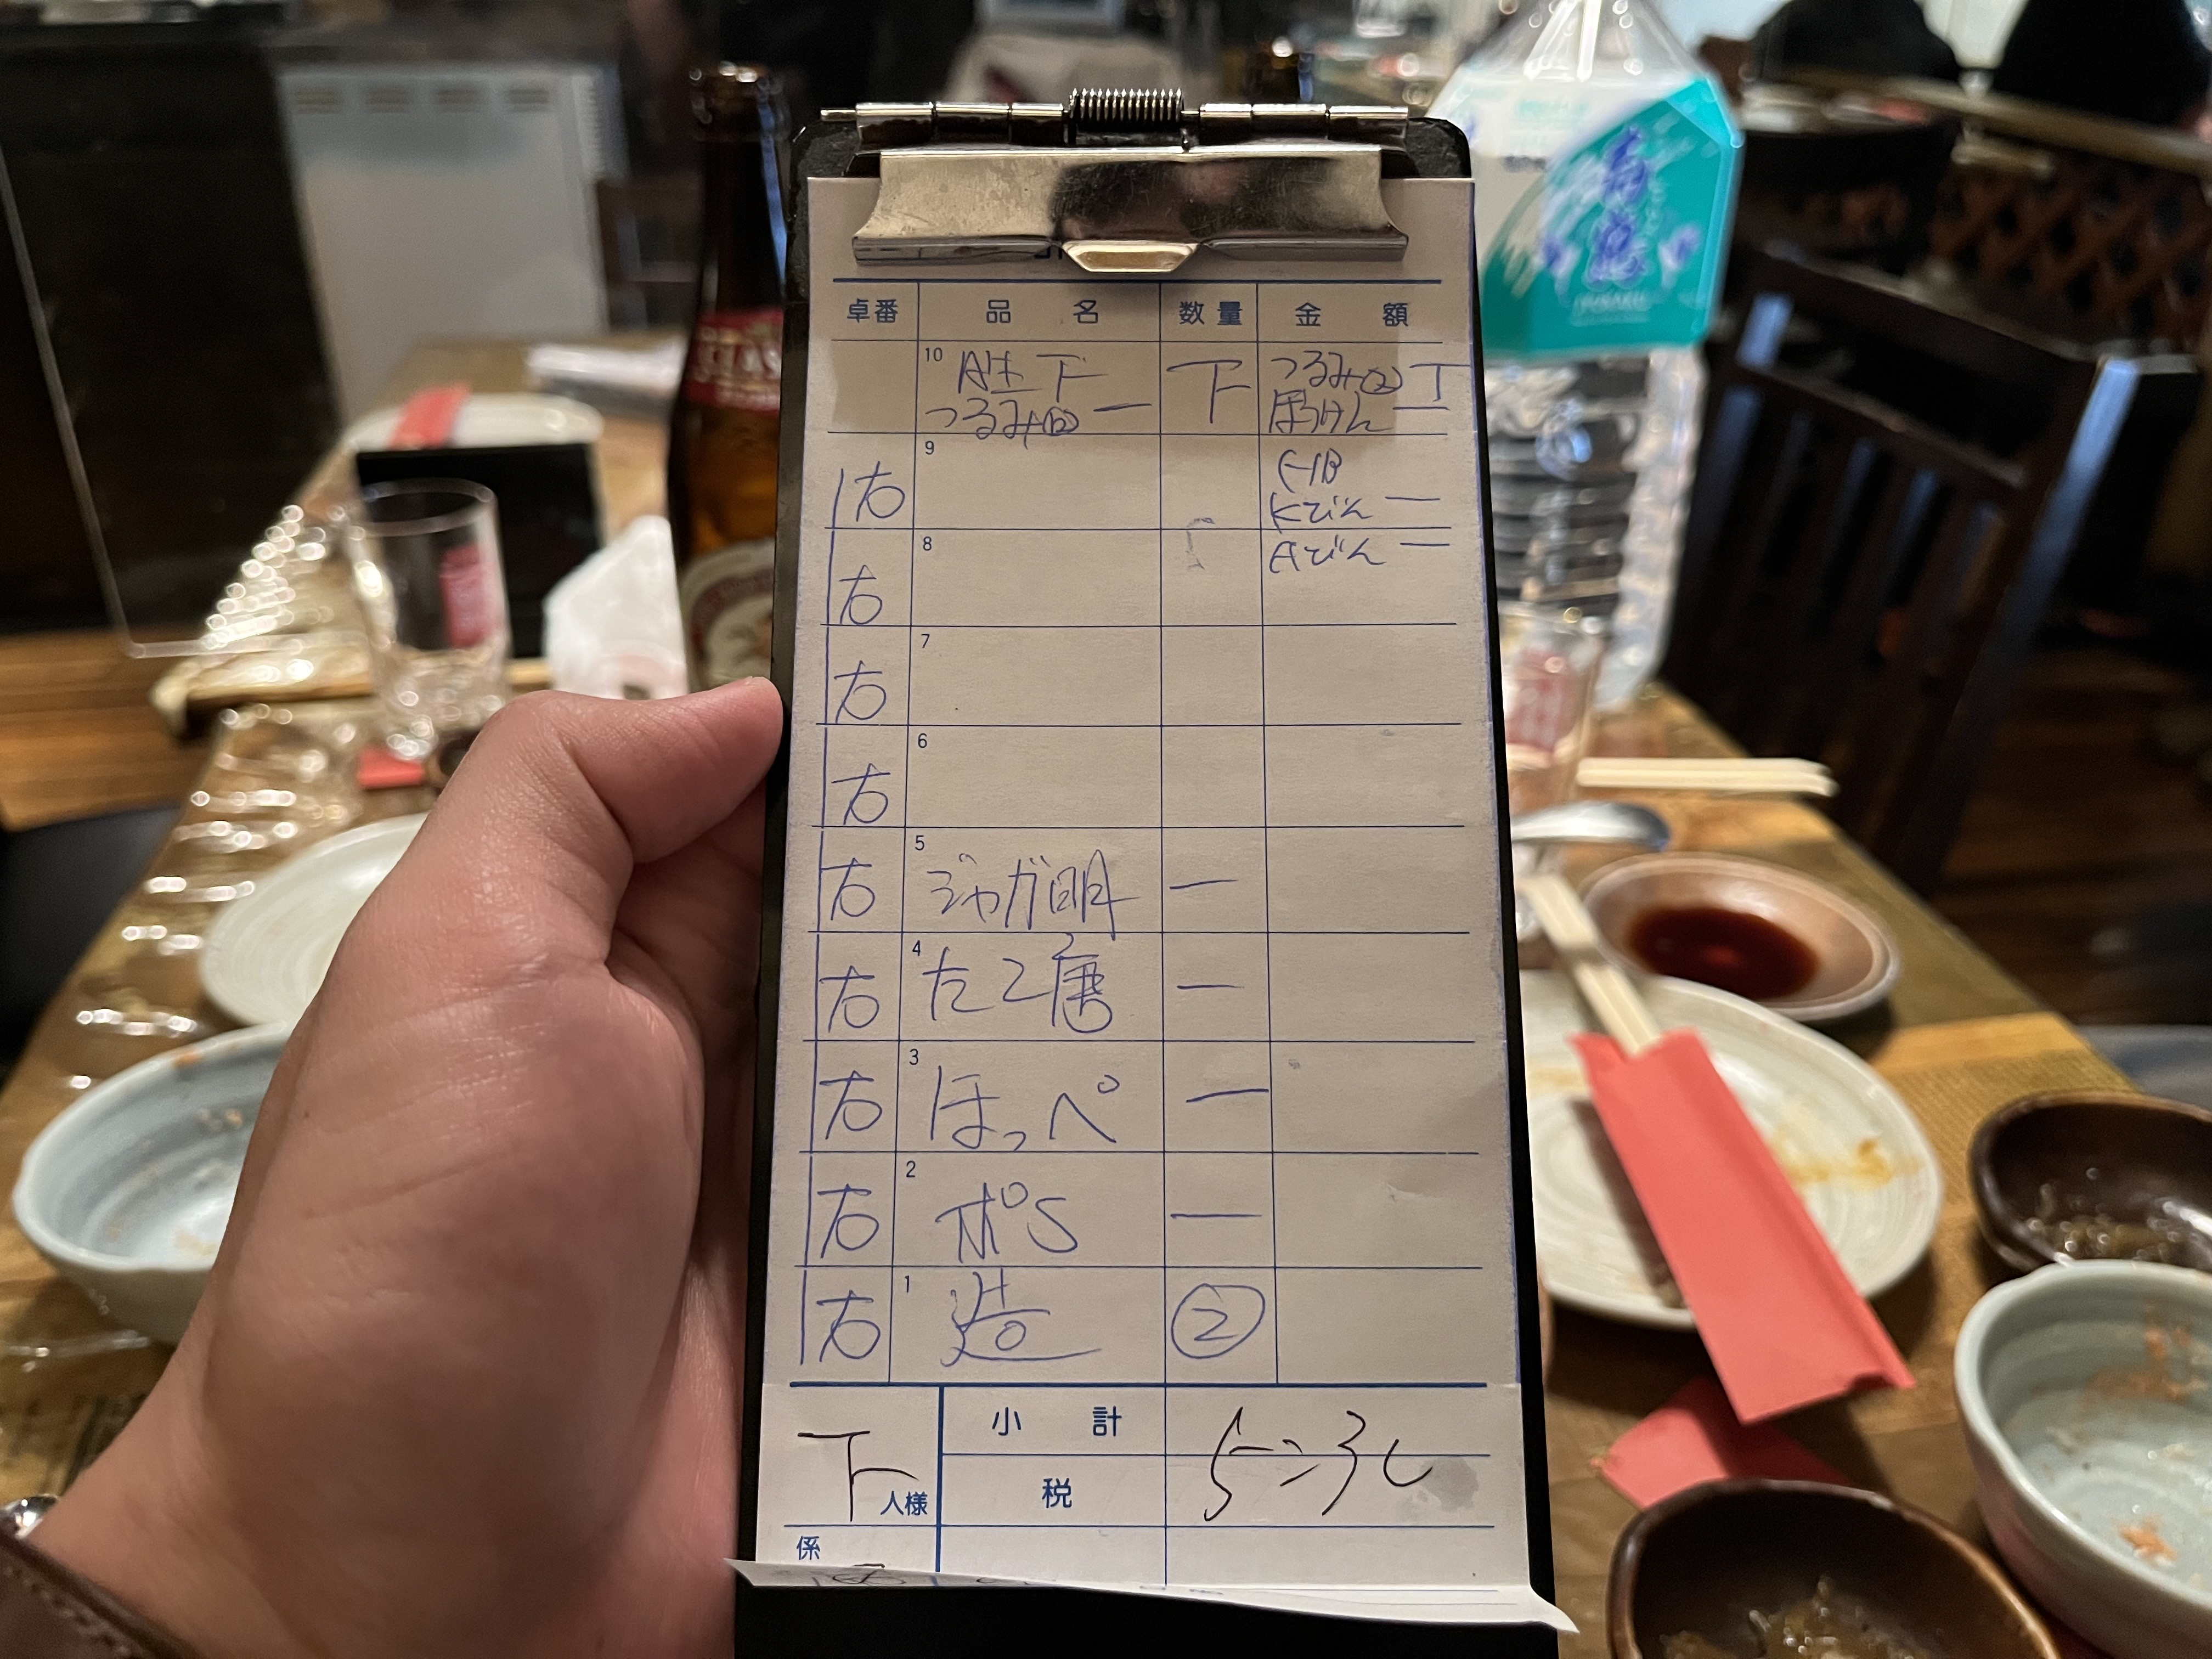 卓番 品名 数量 金額
10 A生 下 下 つるみ(白) T
つるみ(白) 一
9 右
Kびん 一
8 右 Aびん 一
7 右
6 右
5 右 ジャガ明 一
4 右 たこ唐 一
3 右 ほっぺ 一
2 右 ポS 一
1 右 造 ②
下人様 小計
税
係